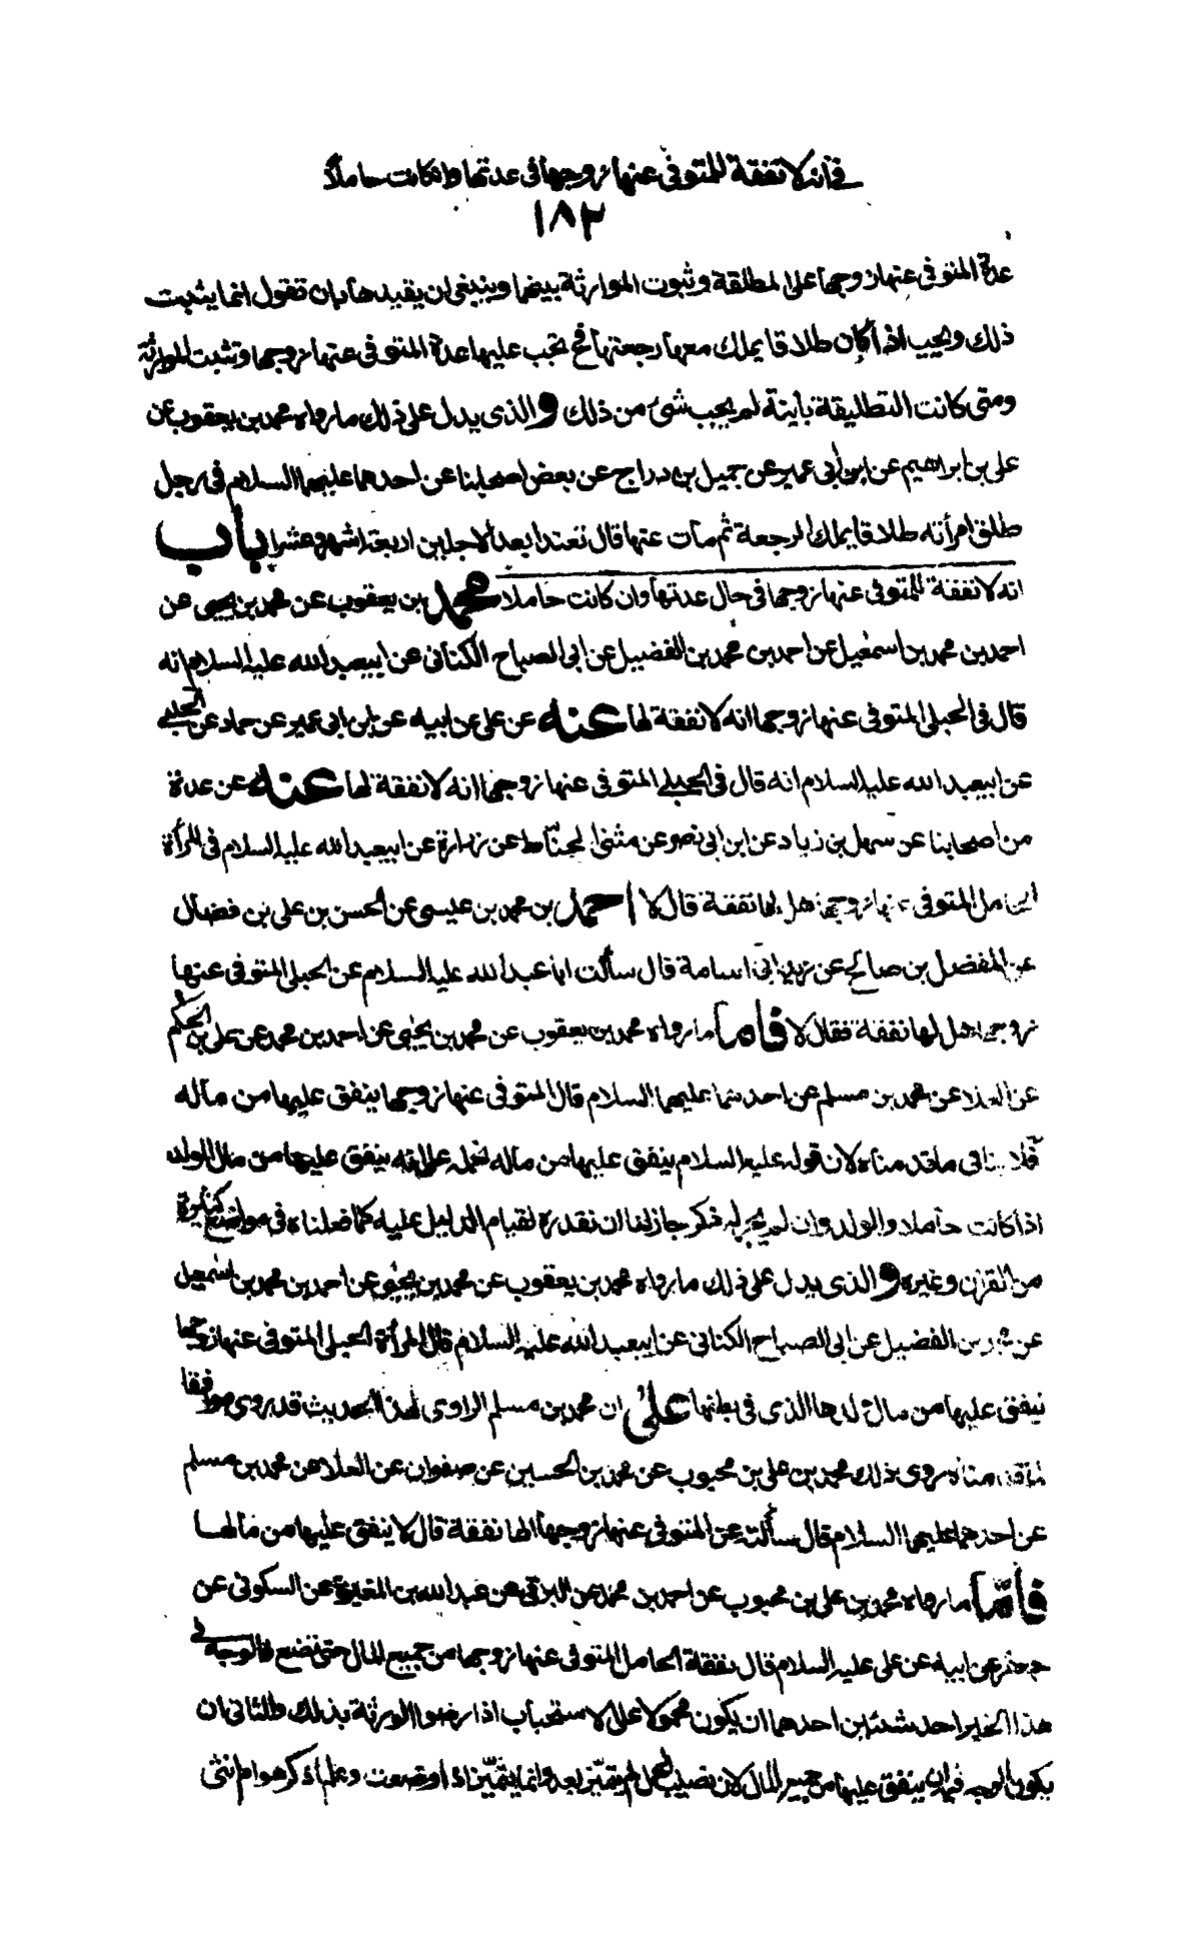 في أنه لا نفقة للمتوفى عنها زوجها في عدتها وان كانت حاملا
١٨٢
عدة المتوفى عنها زوجها على المطلقة وثبوت الموارثة بينهما وينبغي ان يقيدها بان تقول انما يثبت
ذلك ويجب اذا كان طلاقا يملك معها رجعتها فح تجب عليها عدة المتوفى عنها زوجها وتثبت الموارثة
ومتى كانت التطليقة باينة لم يجب شئ من ذلك والذى يدل على ذلك ما رواه محمد بن يعقوب عن
على بن ابراهيم عن ابن أبى عمير عن جميل بن دراج عن بعض اصحابنا عن احدهما عليهما السلام فى رجل
طلق امرأته طلاقا يملك الرجعة ثم مات عنها قال تعتد ابعد الاجلين اربعة اشهر وعشرا باب
انه لا نفقة للمتوفى عنها زوجها فى حال عدتها وان كانت حاملا محمد بن يعقوب عن محمد بن يحيى عن
احمد بن محمد بن اسمعيل عن احمد بن محمد بن الفضيل عن ابى الصباح الكنانى عن ابيعبد الله عليه السلام انه
قال فى الحبلى المتوفى عنها زوجها انه لا نفقة لها عنه عن على عن ابيه عن ابن ابى عمير عن حماد عن الحلبى
عن ابيعبد الله عليه السلام انه قال فى الحبلى المتوفى عنها زوجها انه لا نفقة لها عنه عن عدة
من اصحابنا عن سهل بن زياد عن ابن ابى نصر عن مثنى الحناط عن زرارة عن ابيعبد الله عليه السلام فى المرأة
الحامل المتوفى عنها زوجها هل لها نفقة قال لا احمد بن محمد بن عيسى عن الحسن بن على بن فضال
عن المفضل بن صالح عن زيد ابى اسامة قال سألت ابا عبد الله عليه السلام عن الحبلى المتوفى عنها
زوجها هل لها نفقة فقال لا فاما ما رواه محمد بن يعقوب عن محمد بن يحيى عن احمد بن محمد عن على بن الحكم
عن العلا عن محمد بن مسلم عن احدهما عليهما السلام قال المتوفى عنها زوجها ينفق عليها من ماله
فلا ينافى ما قدمناه لان قوله عليه السلام ينفق عليها من ماله نحمله على انه ينفق عليها من مال الولد
اذا كانت حاملا والولد وان لم يجر له ذكر جاز لنا ان نقدره لقيام الدليل عليه كما فعلناه فى مواضع كثيرة
من القران وغيره والذى يدل على ذلك ما رواه محمد بن يعقوب عن محمد بن يحيى عن احمد بن محمد بن اسمعيل
عن محمد بن الفضيل عن ابى الصباح الكنانى عن ابيعبد الله عليه السلام قال المرأة الحبلى المتوفى عنها زوجها
ينفق عليها من مال ولدها الذى فى بطنها على ان محمد بن مسلم الراوى لهذا الحديث قد روى موافقا
لما قدمناه روى ذلك محمد بن على بن محبوب عن محمد بن الحسين عن صفوان عن العلا عن محمد بن مسلم
عن احدهما عليهما السلام قال سألته عن المتوفى عنها زوجها الها نفقة قال لا ينفق عليها من مالها
فأمّا ما رواه محمد بن على بن محبوب عن احمد بن محمد عن البرقى عن عبد الله بن المغيرة عن السكونى عن
جعفر عن ابيه عن على عليه السلام قال نفقة الحامل المتوفى عنها زوجها من جميع المال حتى تضع فالوجه فى
هذا الخبر احد شيئين احدهما ان يكون محمولا على الاستحباب اذا رضوا الورثة بذلك والثانى ان
يكون الوجه فيه ان ينفق عليها من جميع المال لان نصيب الحمل لم يتميّز بعد وانما يتميّز اذا وضعت وعلم أذكر هو ام انثى